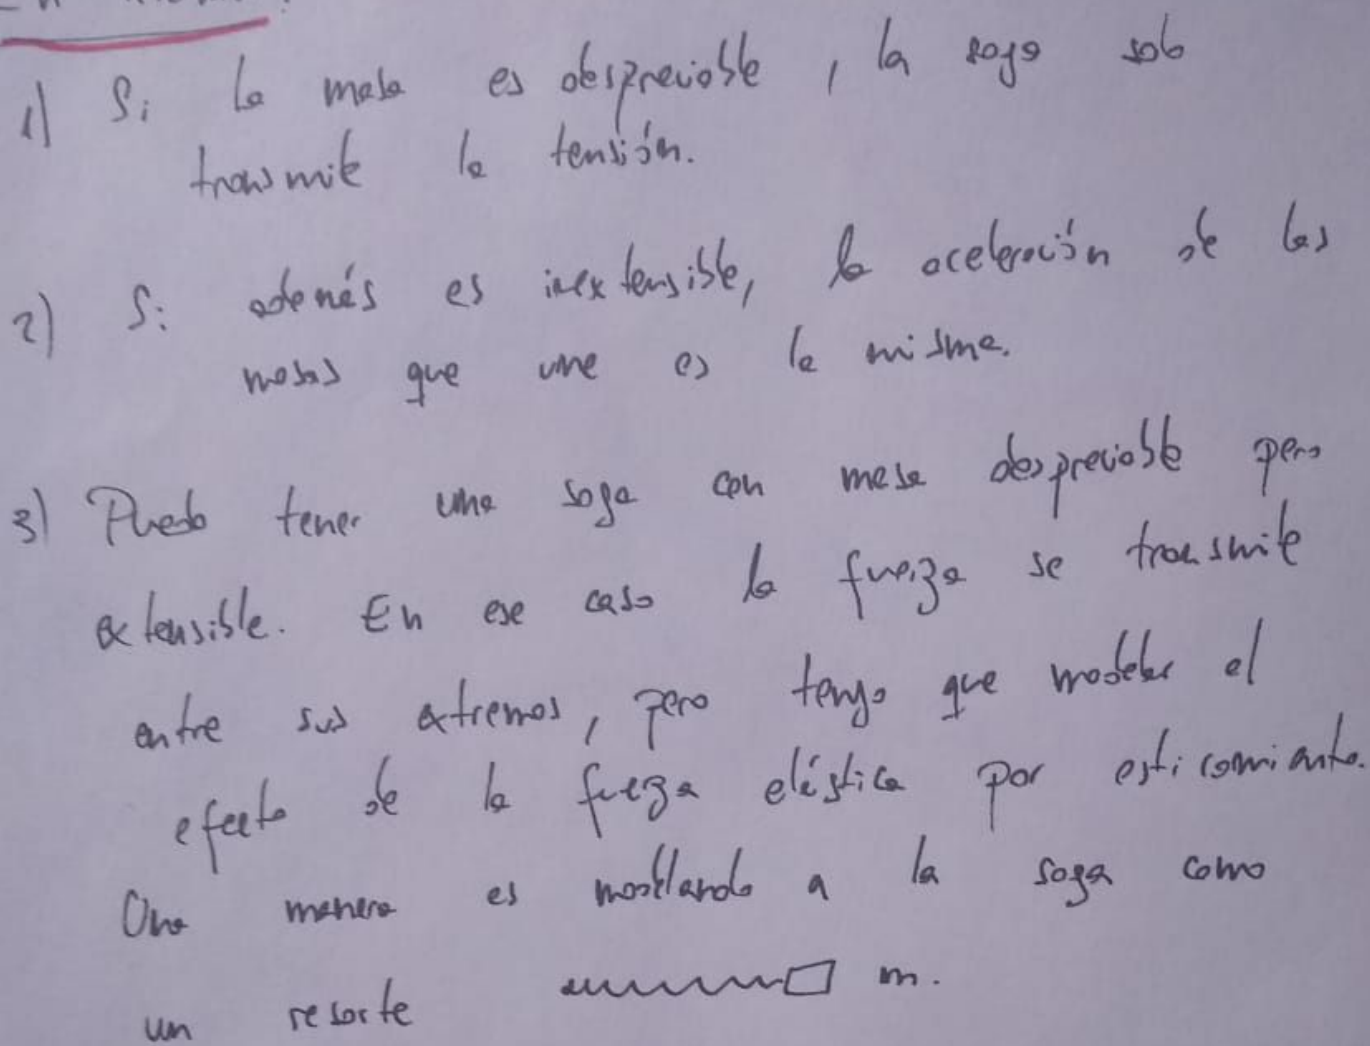 1) Si la masa es despreciable, la soga solo
transmite la tensión.
2) Si además es inextensible, la aceleración de las
masas que une es la misma.
3) Puedo tener una soga con masa despreciable pero
extensible. En ese caso la fuerza se transmite
entre sus extremos, pero tengo que modelar el
efecto de la fuerza elástica por estiramiento.
Una manera es modelando a la soga como
un resorte m.